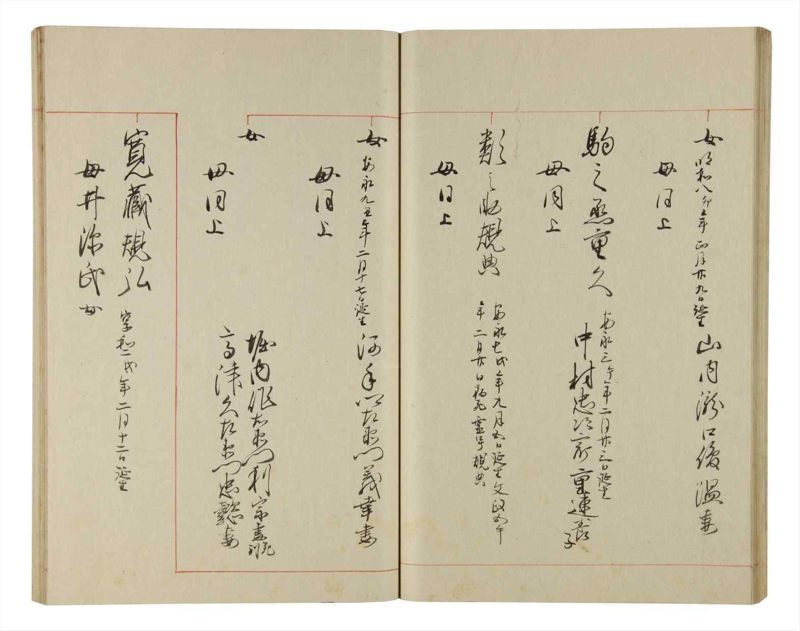 女 明和八卯年正月廿九日誕生 山内瀧口俊温妻
母同上
駒之丞重久 安永三午年二月廿三日誕生 中村忠次 重連養子
母同上
類之助規典 安永七戌年九月 日誕生文政 午
年二月廿日病死霊号規典
母同上
女 安永九子年二月十七日誕生 河手 左衛門義幸妻
母同上
女 堀内 右衛門利宗妻
高津久左衛門忠懿妻
母同上
寛蔵規弘 享和二戌年二月十二日誕生
母井源氏女